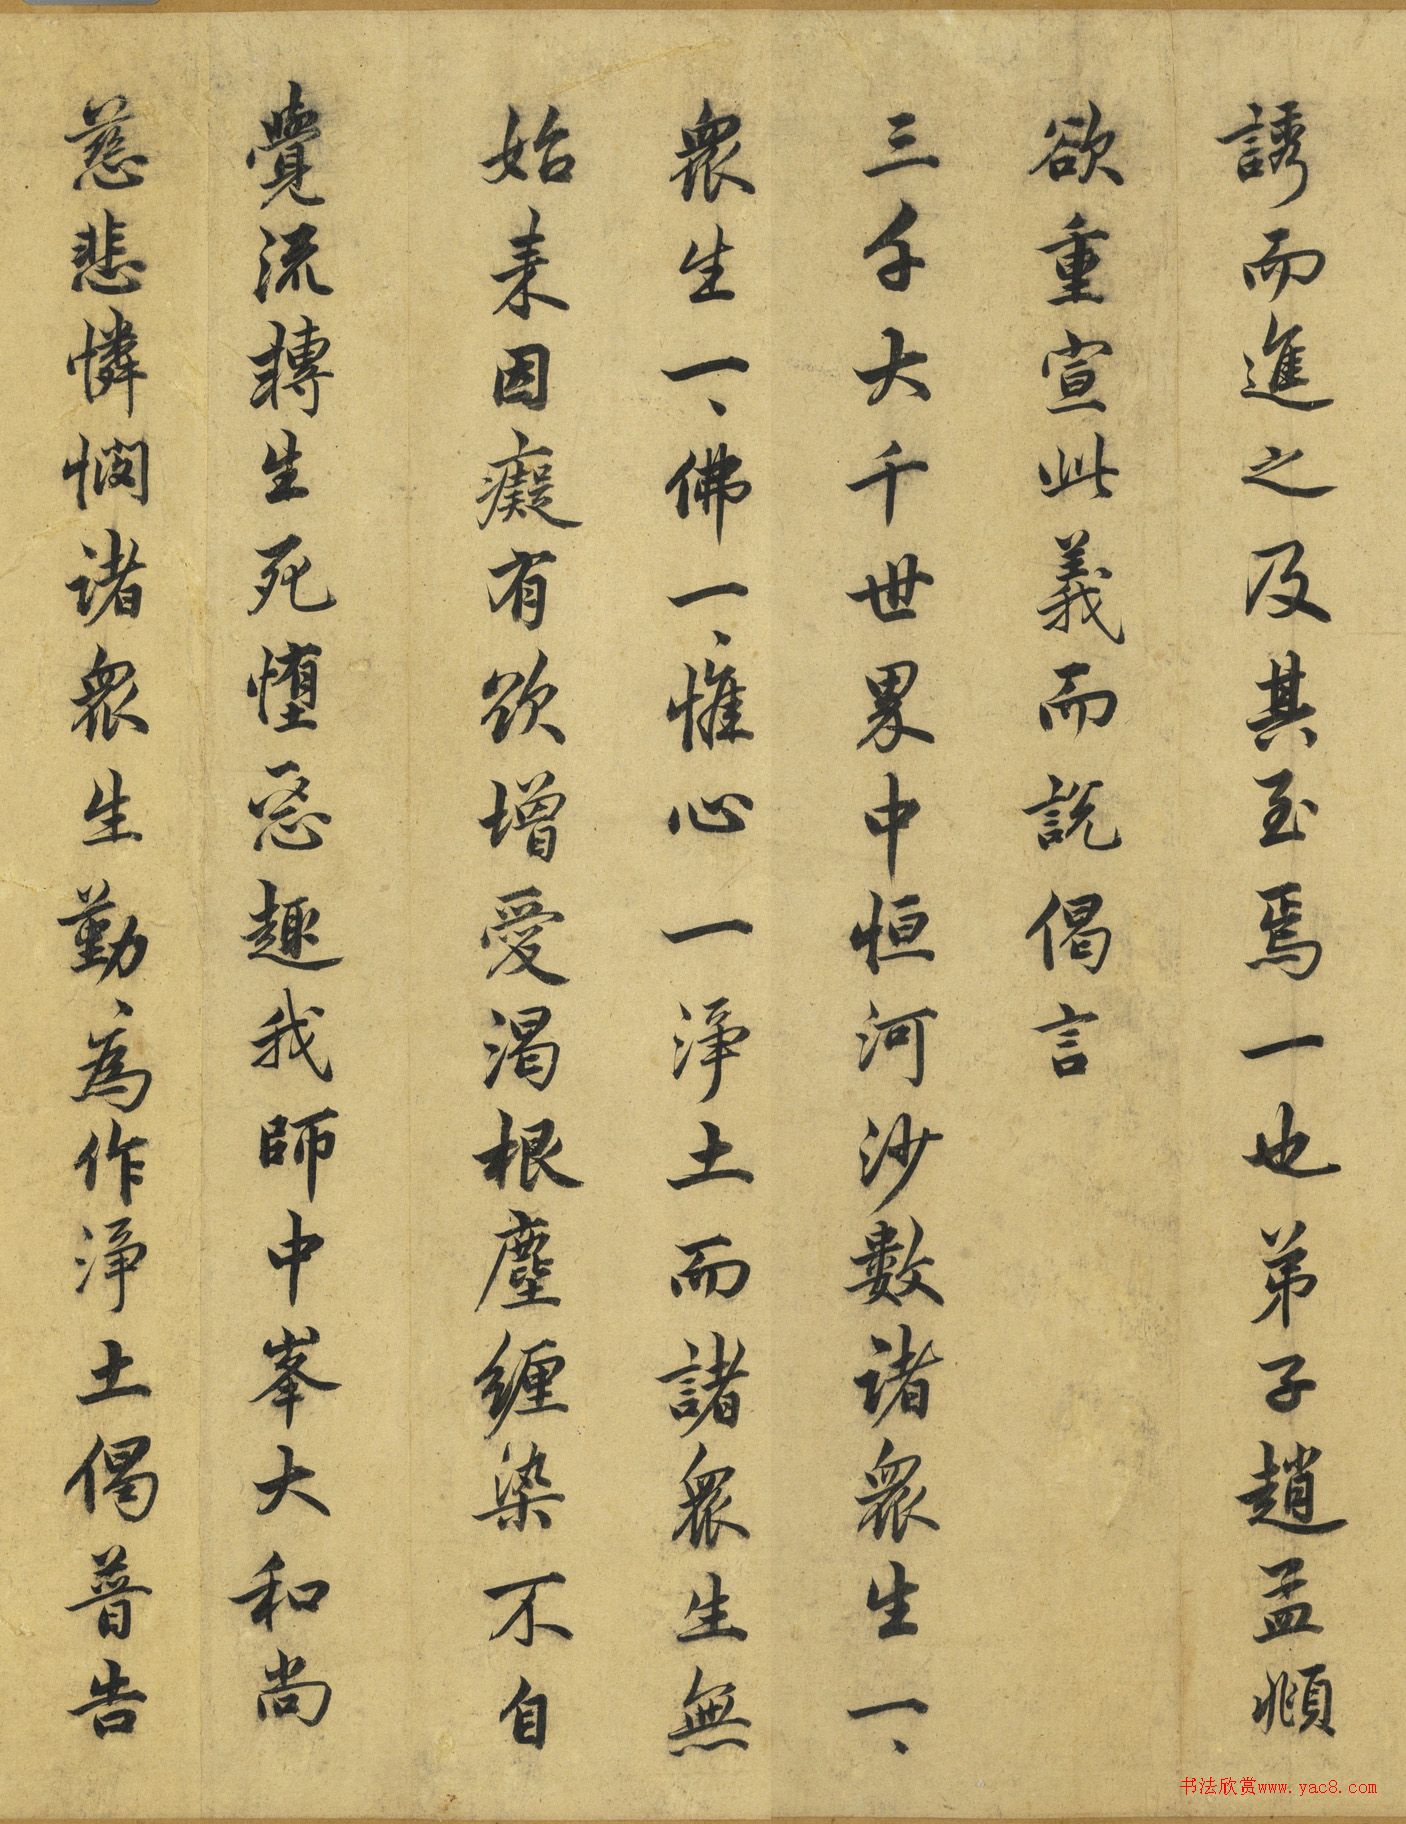 誘而進之及其至焉一也弟子趙孟頫
欲重宣此義而說偈言
三千大千世界中恒河沙數諸衆生一、
衆生一、佛一、惟心一淨土而諸衆生無
始来因癡有欲增愛渴根塵纏染不自
覺流轉生死墮惡趣我師中峯大和尚
慈悲憐憫諸衆生勤、為作淨土偈普告
书法欣赏www.yac8.com